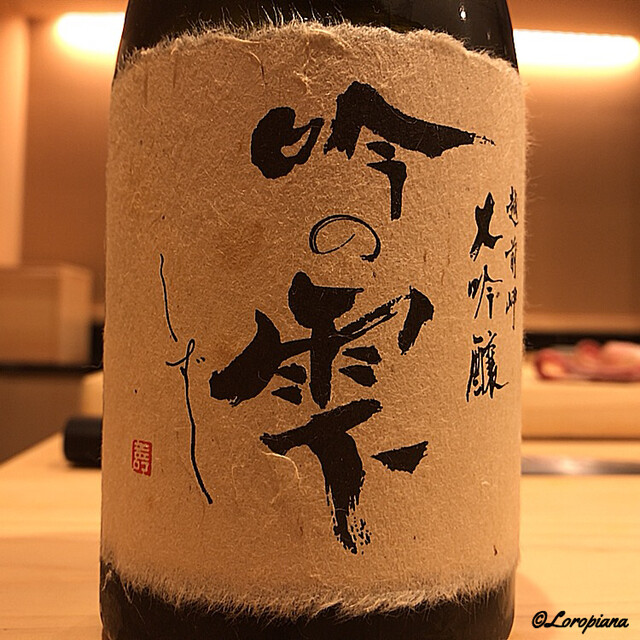 越前岬
大吟醸
吟の雫
しずく
壽
©Loropiana